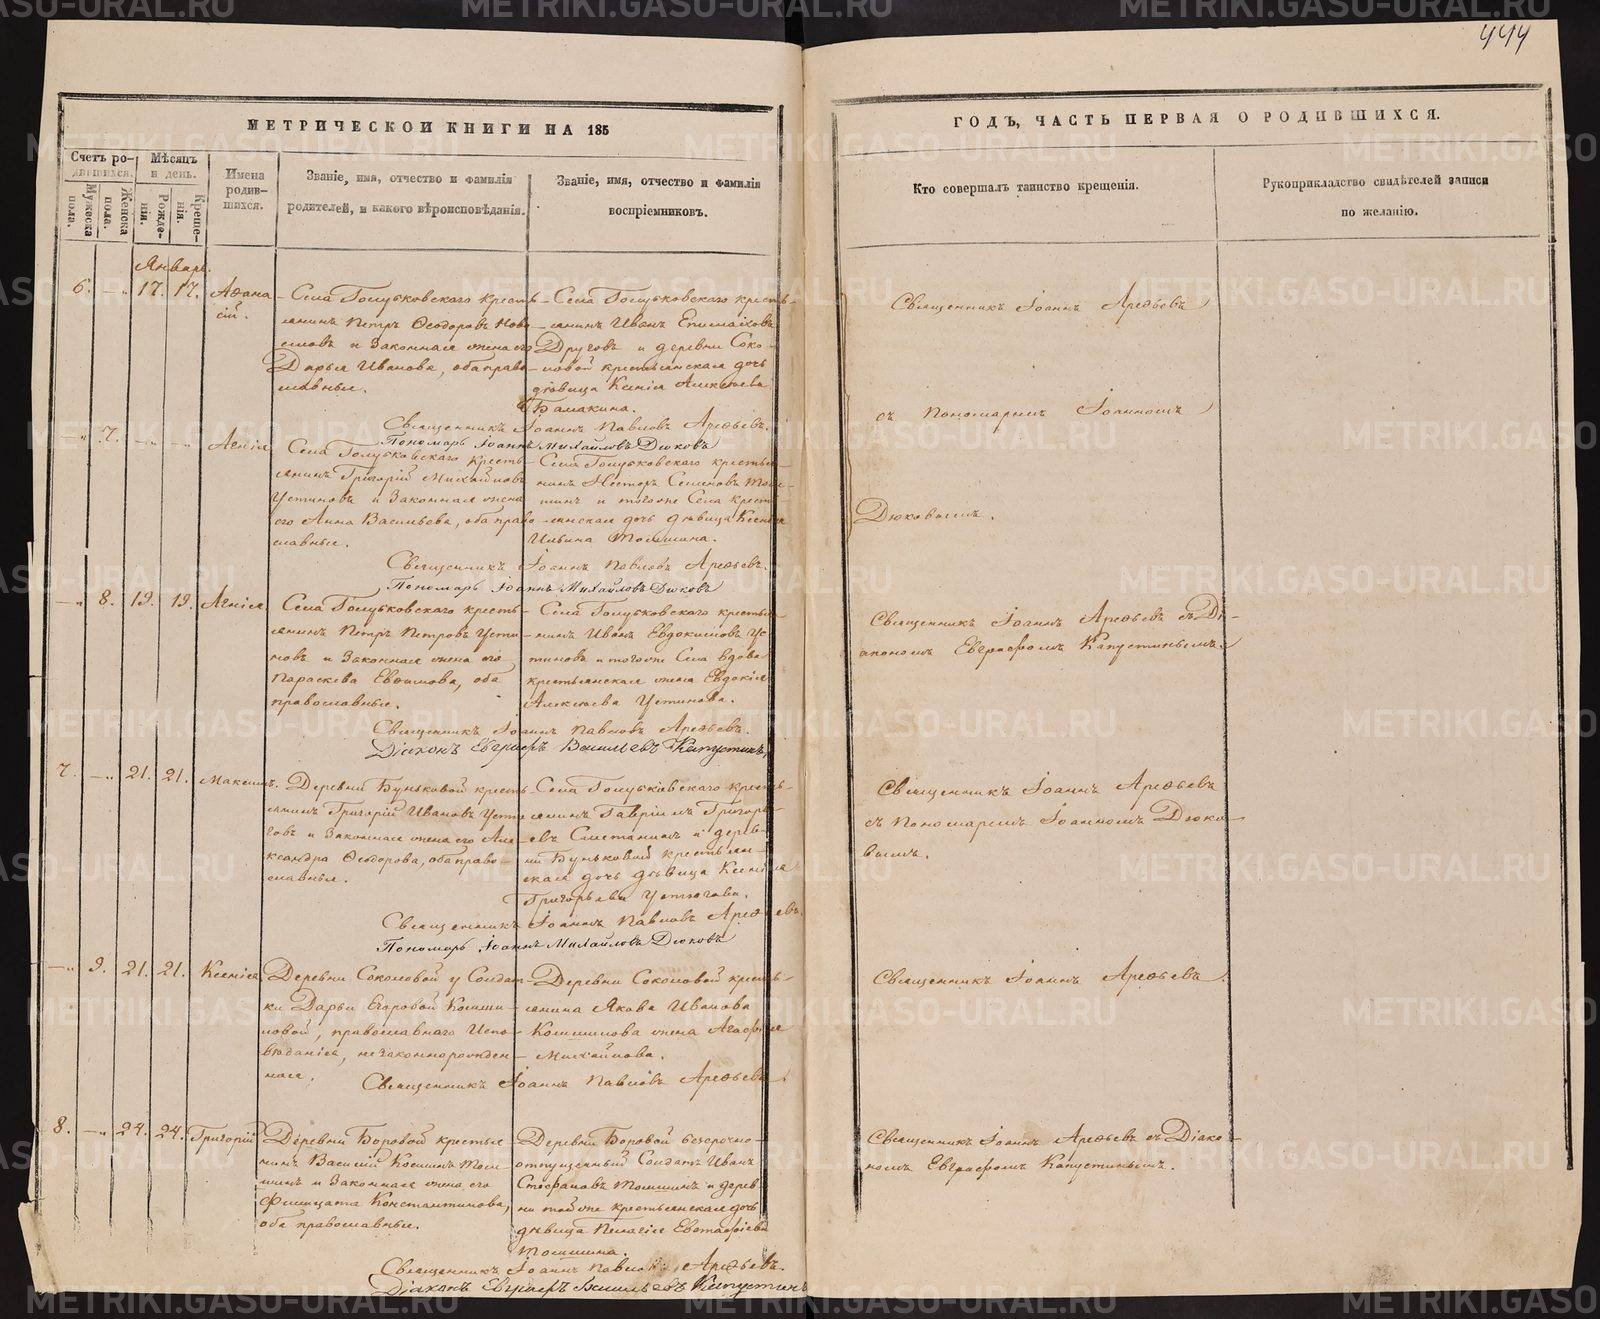 444
МЕТРИЧЕСКОЙ КНИГИ НА 185
ГОДЪ, ЧАСТЬ ПЕРВАЯ О РОДИВШИХСЯ.
Счетъ ро-
дившихся.
Мужеска
пола.
Женска
пола.
Мѣсяцъ
и день.
Рожде-
нія.
Креще-
нія.
Имена
родив-
шихся.
Званіе, имя, отчество и фамилія
родителей, и какого вѣроисповѣданія.
Званіе, имя, отчество и фамилія
воспріемниковъ.
Кто совершалъ таинство крещенія.
Рукоприкладство свидѣтелей записи
по желанію.
Январь.
6. 17. 17. Аѳана
сій.
Села Голубковскаго кресть
янинъ Петръ Ѳеодоровъ Ново
силовъ и Законная жена его
Дарья Иванова, оба право
славные.
Села Голубковскаго кресть-
янинъ Иванъ
Друговъ и деревни Соко-
ловой крестьянская дочь
дѣвица Ксенія Алексѣева
Балакина.
Священникъ Іоаннъ Павловъ Арефьевъ.
Пономарь Іоаннъ Михайловъ Дюковъ
Священникъ Іоаннъ Арефьевъ
съ Пономаремъ Іоанномъ
Дюковымъ.
7. Агнія
Села Голубковскаго кресть-
янинъ Григорій Михайловъ
Устиновъ и Законная жена
его Анна Васильева, оба право
славные.
Села Голубковскаго крестья-
нинъ Несторъ Семеновъ
и тогоже Села кресть-
янская дочь дѣвица Ксенія
Ильина
Священникъ Іоаннъ Павловъ Арефьевъ.
Пономарь Іоаннъ Михайловъ Дюковъ
8. 19. 19. Агнія
Села Голубковскаго кресть-
янинъ Петръ Петровъ Усти-
новъ и Законная жена его
Параскева Евѳимова, оба
православные.
Села Голубковскаго крестья-
нинъ Иванъ Евдокимовъ Ус-
тиновъ и тогоже Села вдова
крестьянская жена Евдокія
Алексѣева Устинова.
Священникъ Іоаннъ Павловъ Арефьевъ.
Діаконъ Евграфъ Васильевъ Капустинъ
Священникъ Іоаннъ Арефьевъ съ Ді-
акономъ Евграфомъ Капустинымъ.
7. 21. 21. Максимъ.
Деревни Буньковой кресть-
янинъ Григорій Ивановъ Устю
говъ и Законная жена его Але-
ксандра Ѳеодорова, оба право-
славные.
Села Голубковскаго кресть-
янинъ Гавріилъ Григорь-
евъ Сметанинъ и дерев-
ни Буньковой крестьян-
ская дочь дѣвица Ксенія
Григорьева Устюгова.
Священникъ Іоаннъ Павловъ Арефьевъ.
Пономарь Іоаннъ Михайловъ Дюковъ
Священникъ Іоаннъ Арефьевъ
съ Пономаремъ Іоанномъ Дюко-
вымъ.
9. 21. 21. Ксенія
Деревни Соколовой у Солдат-
ки Дарьи Егоровой Кошки-
ловой, православнаго Испо-
вѣданія, незаконнорожден-
ная.
Деревни Соколовой кресть-
янина Якова Иванова
жена Агафія
Михайлова.
Священникъ Іоаннъ Павловъ Арефьевъ.
Священникъ Іоаннъ Арефьевъ.
8. 24. 24. Григорій
Деревни Боровой крестья
нинъ Василій Косминъ
и Законная жена его
Филицата Константинова,
оба православные.
Деревни Боровой безсрочно-
отпущенный Солдатъ Иванъ
Стефановъ и дерев-
ни тойже крестьянская дочь
дѣвица Пелагія Евстафіева
Священникъ Іоаннъ Павловъ Арефьевъ.
Діаконъ Евграфъ Васильевъ Капустинъ
Священникъ Іоаннъ Арефьевъ съ Діако-
номъ Евграфомъ Капустинымъ.
METRIKI.GASO-URAL.RU